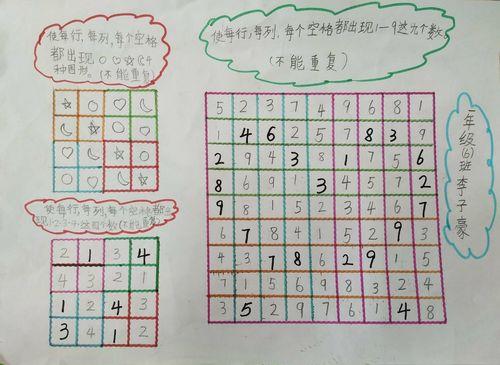 使每行,每列,每个空格
都出现○♡☆☾4
种图形。(不能重复)
使每行,每列,每个空格都出现1—9这九个数。
(不能重复)
使每行,每列,每个空格都出
现1·2·3·4·这四个数(不能重复)
一年级(6)班李子豪
2 1 3 4
4 3 2 1
1 2 4 3
3 4 1 2
5 2 3 7 4 9 6 8 1
1 4 6 2 5 7 8 3 9
2 9 4 3 8 1 7 5 6
8 6 9 1 3 4 5 7 2
9 8 1 5 2 3 4 6 7
6 7 8 4 1 5 2 9 3
4 3 7 8 6 2 9 1 5
7 1 5 6 9 8 3 2 4
3 5 2 9 7 6 1 4 8